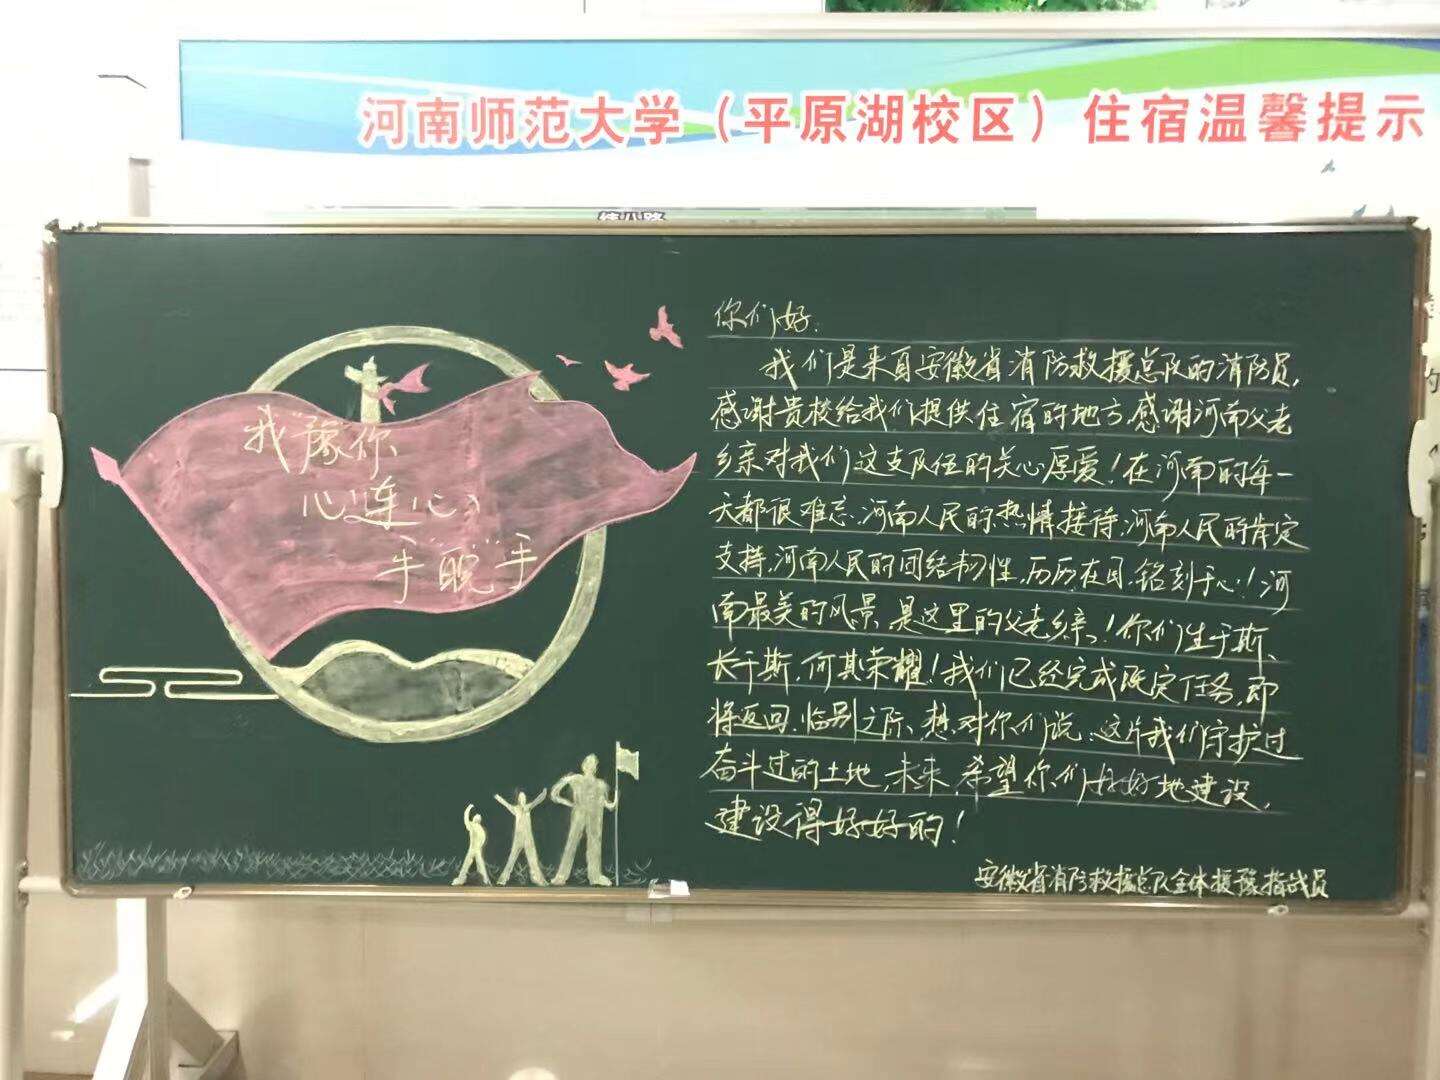 河南师范大学（平原湖校区）住宿温馨提示
我"豫"你
心"连"心
手"皖"手
你们好:
我们是来自安徽省消防救援总队的消防员,
感谢贵校给我们提供住宿的地方,感谢河南父老
乡亲对我们这支队伍的关心厚爱!在河南的每一
天都很难忘,河南人民的热情接待,河南人民的肯定
支持,河南人民的团结韧性,历历在目,铭刻于心!河
南最美的风景,是这里的父老乡亲!你们生于斯、
长于斯,何其荣耀!我们已经完成既定任务,即
将返回,临别之际,想对你们说:这片我们守护过
奋斗过的土地,未来,希望你们好好地建设,
建设得好好的!
安徽省消防救援总队全体援豫指战员